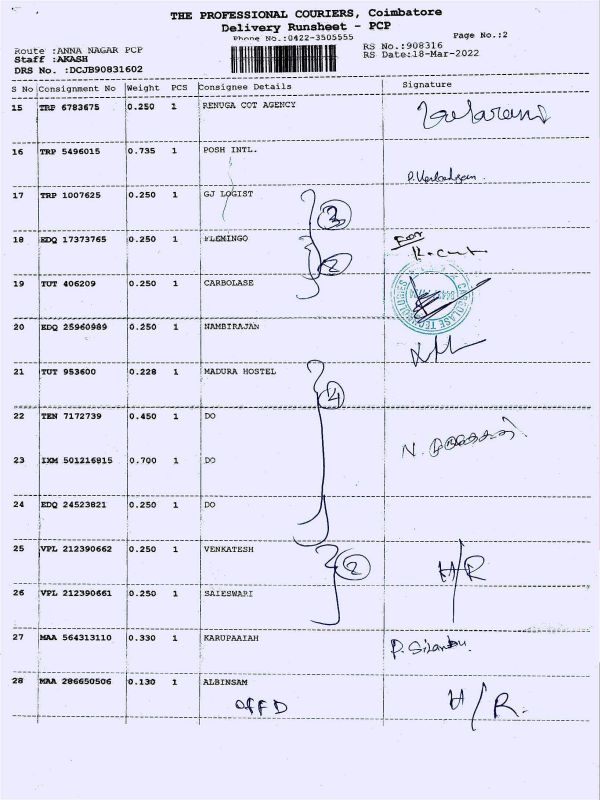 THE PROFESSIONAL COURIERS, Coimbatore
Delivery Runsheet - PCP
Phone No.:0422-3505555 Page No.:2
Route :ANNA NAGAR PCP RS No.:908316
Staff :AKASH RS Date:18-Mar-2022
DRS No. :DCJB90831602
S No Consignment No Weight PCS Consignee Details Signature
15 TRP 6783675 0.250 1 RENUGA COT AGENCY
16 TRP 5496015 0.735 1 POSH INTL.
17 TRP 1007625 0.250 1 GJ LOGIST 3
18 EDQ 17373765 0.250 1 FLEMINGO 2 For
19 TUT 406209 0.250 1 CARBOLASE
20 EDQ 25960989 0.250 1 NAMBIRAJAN
21 TUT 953600 0.228 1 MADURA HOSTEL 4
22 TEN 7172739 0.450 1 DO
23 IXM 501216815 0.700 1 DO
24 EDQ 24523821 0.250 1 DO
25 VPL 212390662 0.250 1 VENKATESH 2 H/R
26 VPL 212390661 0.250 1 SAIESWARI
27 MAA 564313110 0.330 1 KARUPAAIAH P. Silambu.
28 MAA 286650506 0.130 1 ALBINSAM H/R.
OFFD